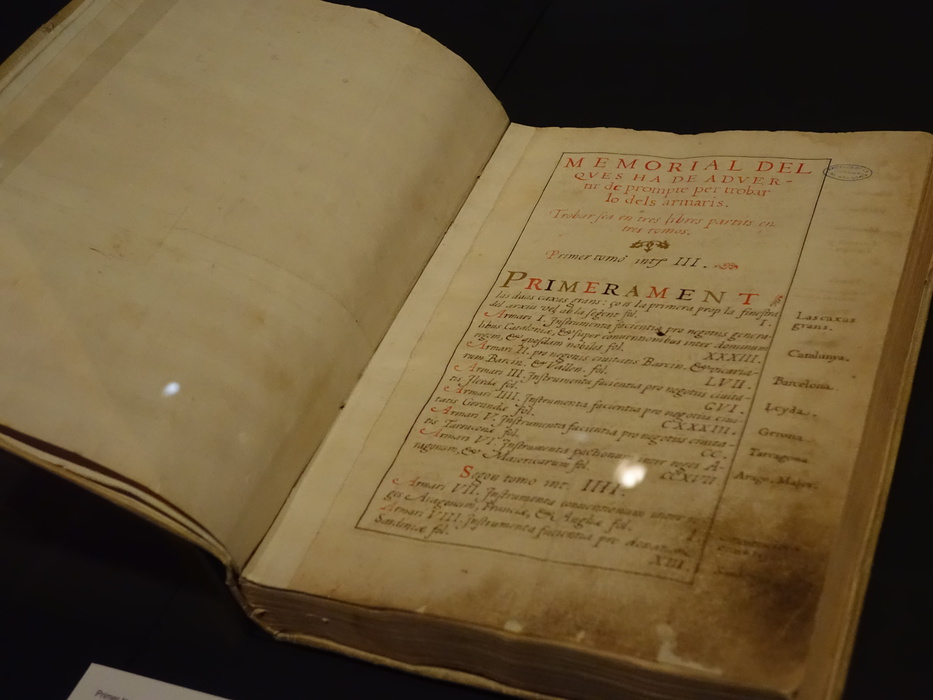 MEMORIAL DEL
QVES HA DE ADVER-
tir de prompte per trobar
lo dels armaris.
Trobar sea en tres libres partits en
tres tomos.
Primer tomo int. III.
PRIMERAMENT
las duas caxas grans: ço es la primera prop la finestra
del arxiu vel ab la segent fol. I.
Armari I. Instrumenta facientia pro negotiis genera-
libus Cataloniæ, & super conventionibus inter dominum
regem, & quosdam nobiles fol. XXXIII.
Armari II. pro negotiis civitatis Barcin. & vicaria-
rum Barcin. & Vallen. fol. LVII.
Armari III. Instrumenta facientia pro negotiis civita-
tis Ilerdæ fol. CVI.
Armari IIII. Instrumenta facientia pro negotiis civi-
tatis Gerundæ fol. CXXXIII.
Armari V. Instrumenta facientia pro negotiis civita-
tis Tarraconæ fol. CC.
Armari VI. Instrumenta pactionum inter reges A-
ragonum, & Maioricarum fol. CCXVII
Segon tomo int. IIII.
Armari VII. Instrumenta conventionum inter re-
ges Aragonum, Franciæ, & Angliæ fol. I.
Armari VIII. Instrumenta facientia pro
Sardiniæ fol. XIII.
Las caxas
grans.
Catalunya.
Barcelona.
Leyda.
Gerona.
Tarragona.
Arago, Mallor.
Primer